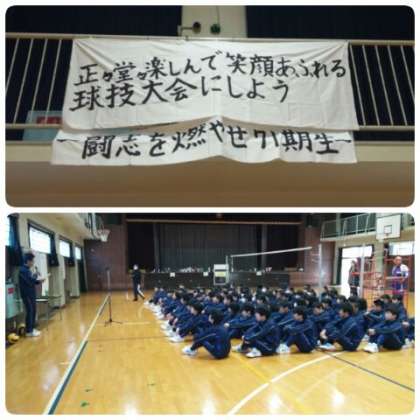 正々堂々楽しんで笑顔あふれる
球技大会にしよう
闘志を燃やせ71期生